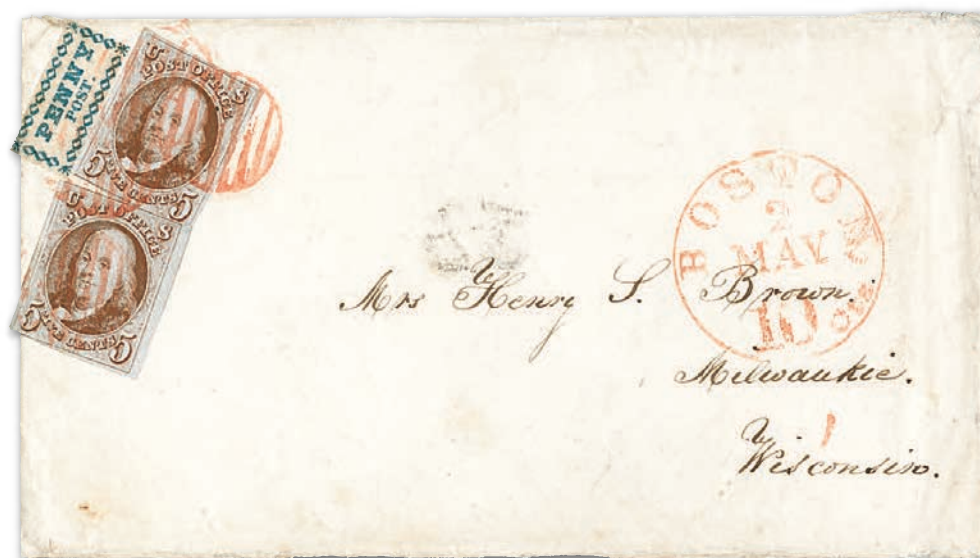 PENNY
POST.
U S
POST OFFICE
5 FIVE CENTS 5
U S
POST OFFICE
5 FIVE CENTS 5
BOSTON
2
MAY
10 cts
Mrs Henry S. Brown.
Milwaukie.
Wisconsin.